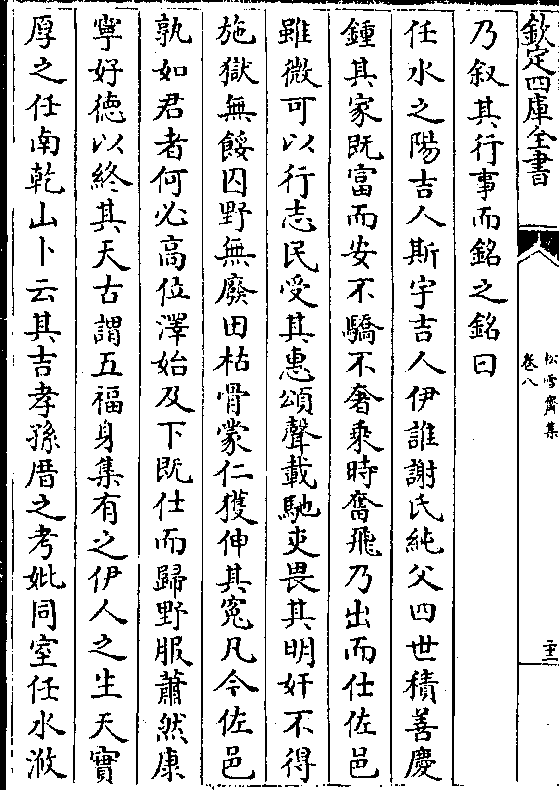 欽定四庫全書
松雪齋集
卷八
二十三
乃叙其行事而銘之銘曰
任水之陽吉人斯宇吉人伊誰謝氏純父四世積善慶
鍾其家既富而安不驕不奢乘時奮飛乃出而仕佐邑
雖微可以行志民受其惠頌聲載馳吏畏其明奸不得
施獄無餒囚野無廢田枯骨蒙仁獲伸其冤凡今佐邑
孰如君者何必高位澤始及下既仕而歸野服蕭然康
寧好徳以終其天古謂五福身集有之伊人之生天實
厚之任南乾山卜云其吉孝孫厝之考妣同室任水㳽